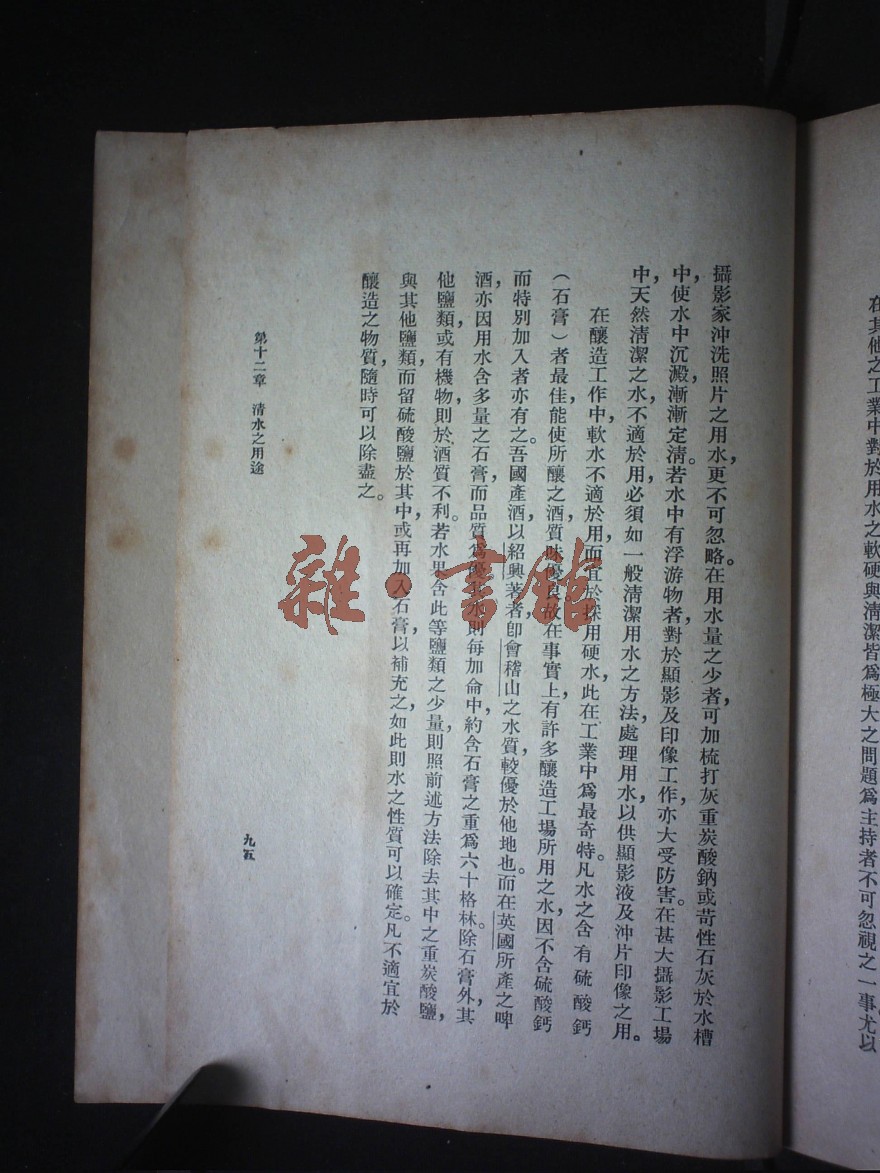 在其他之工業中對於用水之軟硬與清潔皆爲極大之問題爲主持者不可忽視之一事。尤以
攝影家沖洗照片之用水，更不可忽略。在用水量之少者，可加梳打灰重炭酸鈉或苛性石灰於水槽
中，使水中沉澱，漸漸定清。若水中有浮游物者，對於顯影及印像工作，亦大受防害。在甚大攝影工場
中，天然清潔之水，不適於用，必須如一般清潔用水之方法，處理用水，以供顯影液及沖片印像之用。
在釀造工作中，軟水不適於用，而宜於採用硬水，此在工業中爲最奇特。凡水之含有硫酸鈣
（石膏）者最佳，能使所釀之酒質味優良，故在事實上，有許多釀造工場所用之水，因不含硫酸鈣
而特別加入者亦有之。吾國產酒，以紹興著者，卽會稽山之水質，較優於他地也。而在英國所產之啤
酒，亦因用水含多量之石膏，而品質爲優，其水則每加侖中，約含石膏之重爲六十格林。除石膏外，其
他鹽類或有機物，則於酒質不利。若水果含此等鹽類之少量，則照前述方法除去其中之重炭酸鹽，
與其他鹽類，而留硫酸鹽於其中，或再加入石膏以補充之，如此則水之性質可以確定。凡不適宜於
釀造之物質，隨時可以除盡之。
第十二章　清水之用途
九五
雜·書館